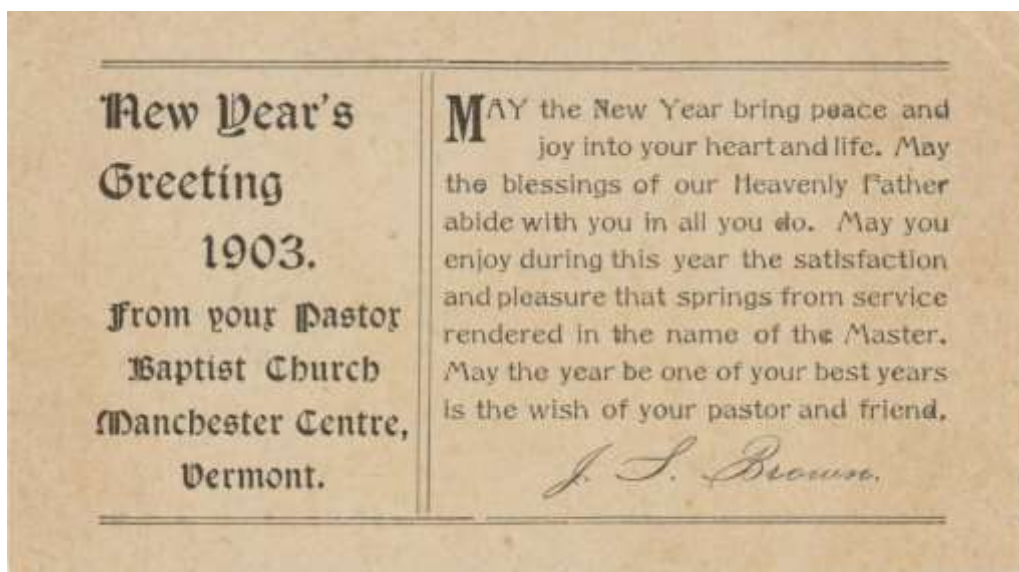 New Year's
Greeting
1903.
From your Pastor
Baptist Church
Manchester Centre,
Vermont.
MAY the New Year bring peace and
joy into your heart and life. May
the blessings of our Heavenly Father
abide with you in all you do. May you
enjoy during this year the satisfaction
and pleasure that springs from service
rendered in the name of the Master.
May the year be one of your best years
is the wish of your pastor and friend.
J. S. Brown.